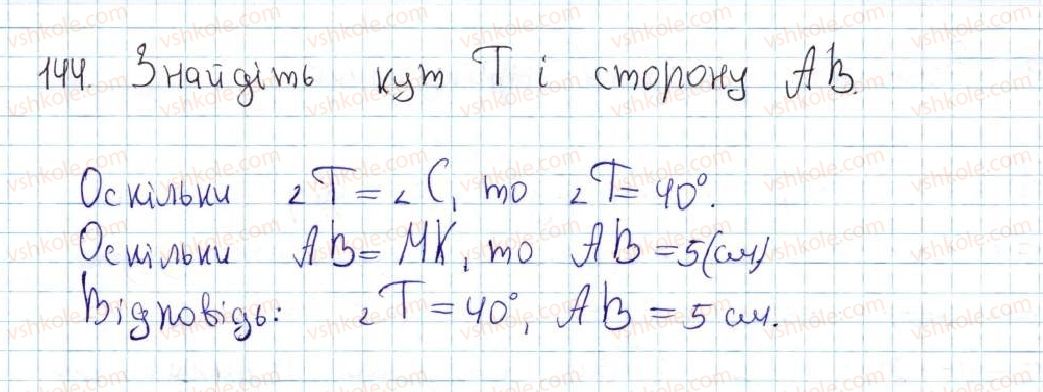 144. Знайдіть кут T і сторону AB.
Оскільки ∠T = ∠C, то ∠T = 40°.
Оскільки AB = MK, то AB = 5 (см)
Відповідь: ∠T = 40°, AB = 5 см.